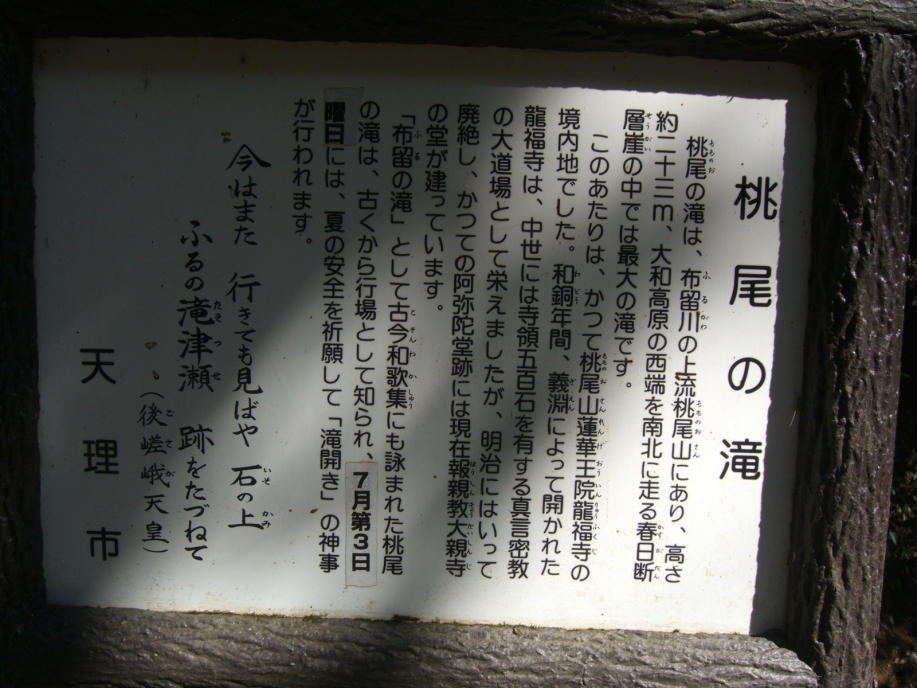 桃尾の滝
桃尾の滝は、布留川の上流桃尾山にあり、高さ
約二十三m、大和高原の西端を南北に走る春日断
層崖の中では最大の滝です。
このあたりは、かつて桃尾山蓮華王院龍福寺の
境内地でした。和銅年間、義淵によって開かれた
龍福寺は、中世には寺領五百石を有する真言密教
の大道場として栄えましたが、明治にはいって
廃絶し、かつての阿弥陀堂跡には現在報親教大親寺
の堂が建っています。
「布留の滝」として古今和歌集にも詠まれた桃尾
の滝は、古くから行場として知られ、7月第3日
曜日には、夏の安全を祈願して「滝開き」の神事
が行われます。
今はまた 行きても見ばや 石の上
ふるの滝津瀬 跡をたづねて
(後嵯峨天皇)
天理市